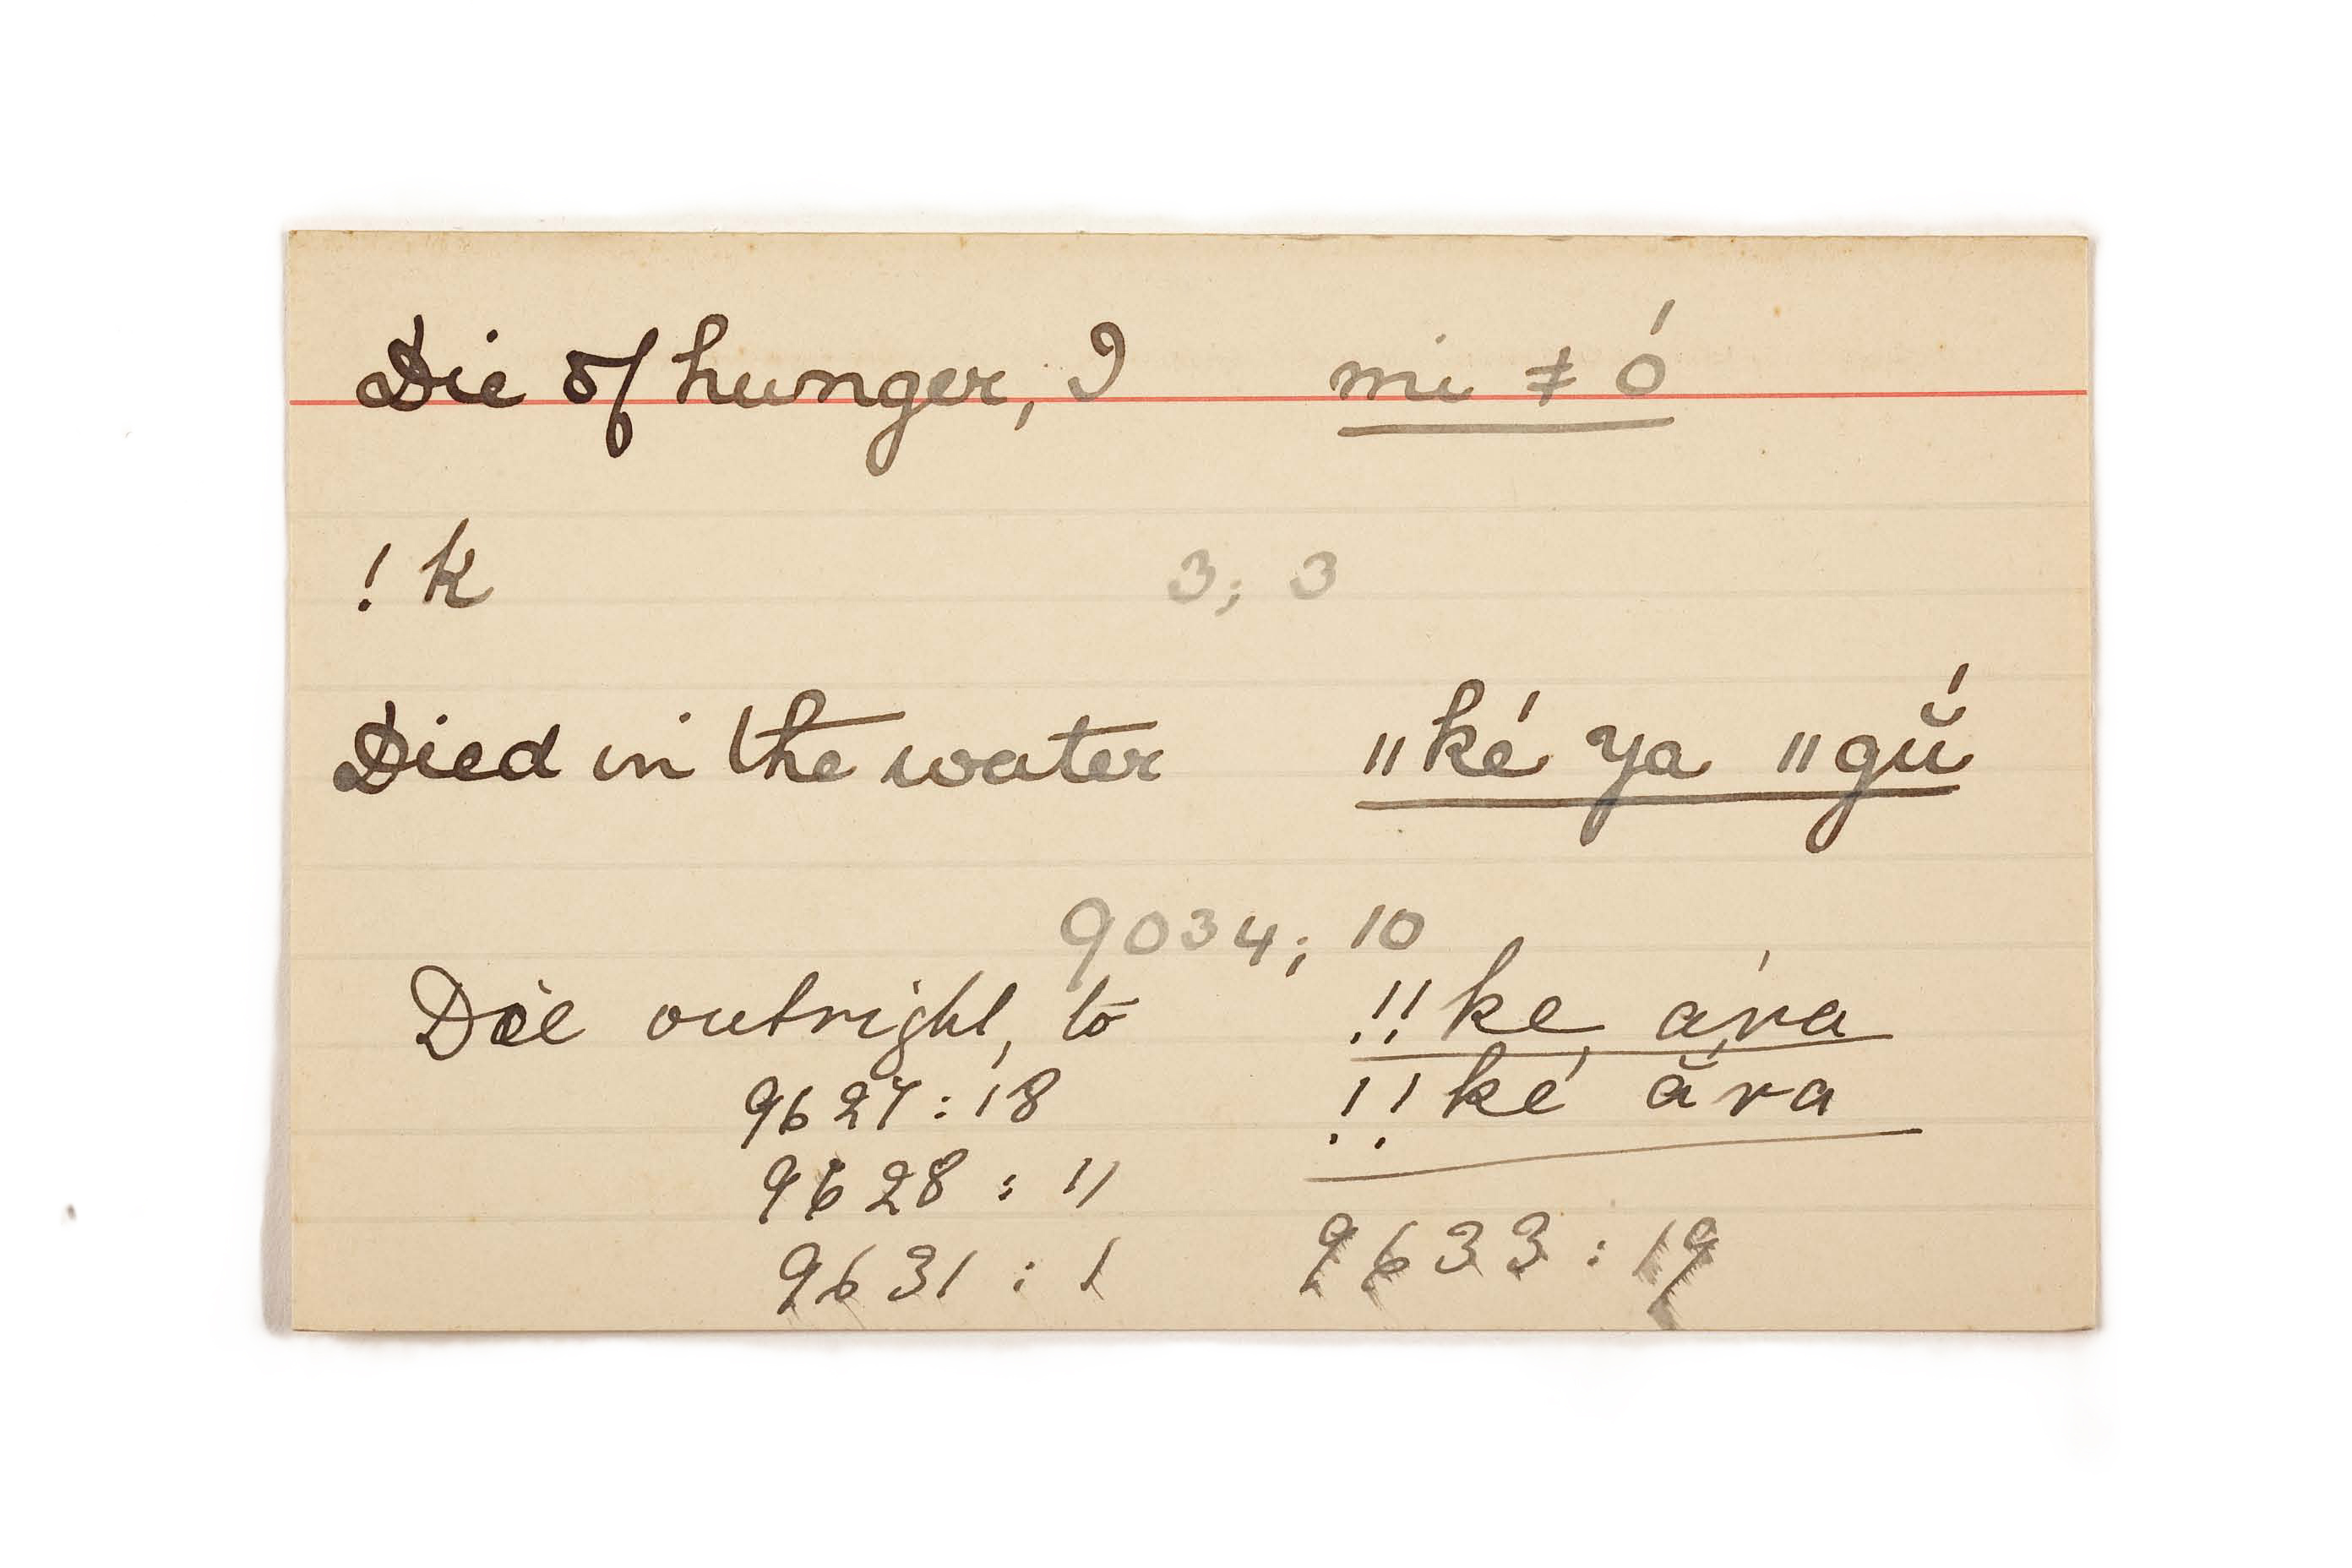 Die of hunger, I mi ǂ ó
! k 3; 3
Died in the water ǁké ya ǁgṹ
9034; 10
Die outright, to !!ke ára
9627:18 !!ké ắra
9628:11
9631:1 9633:19